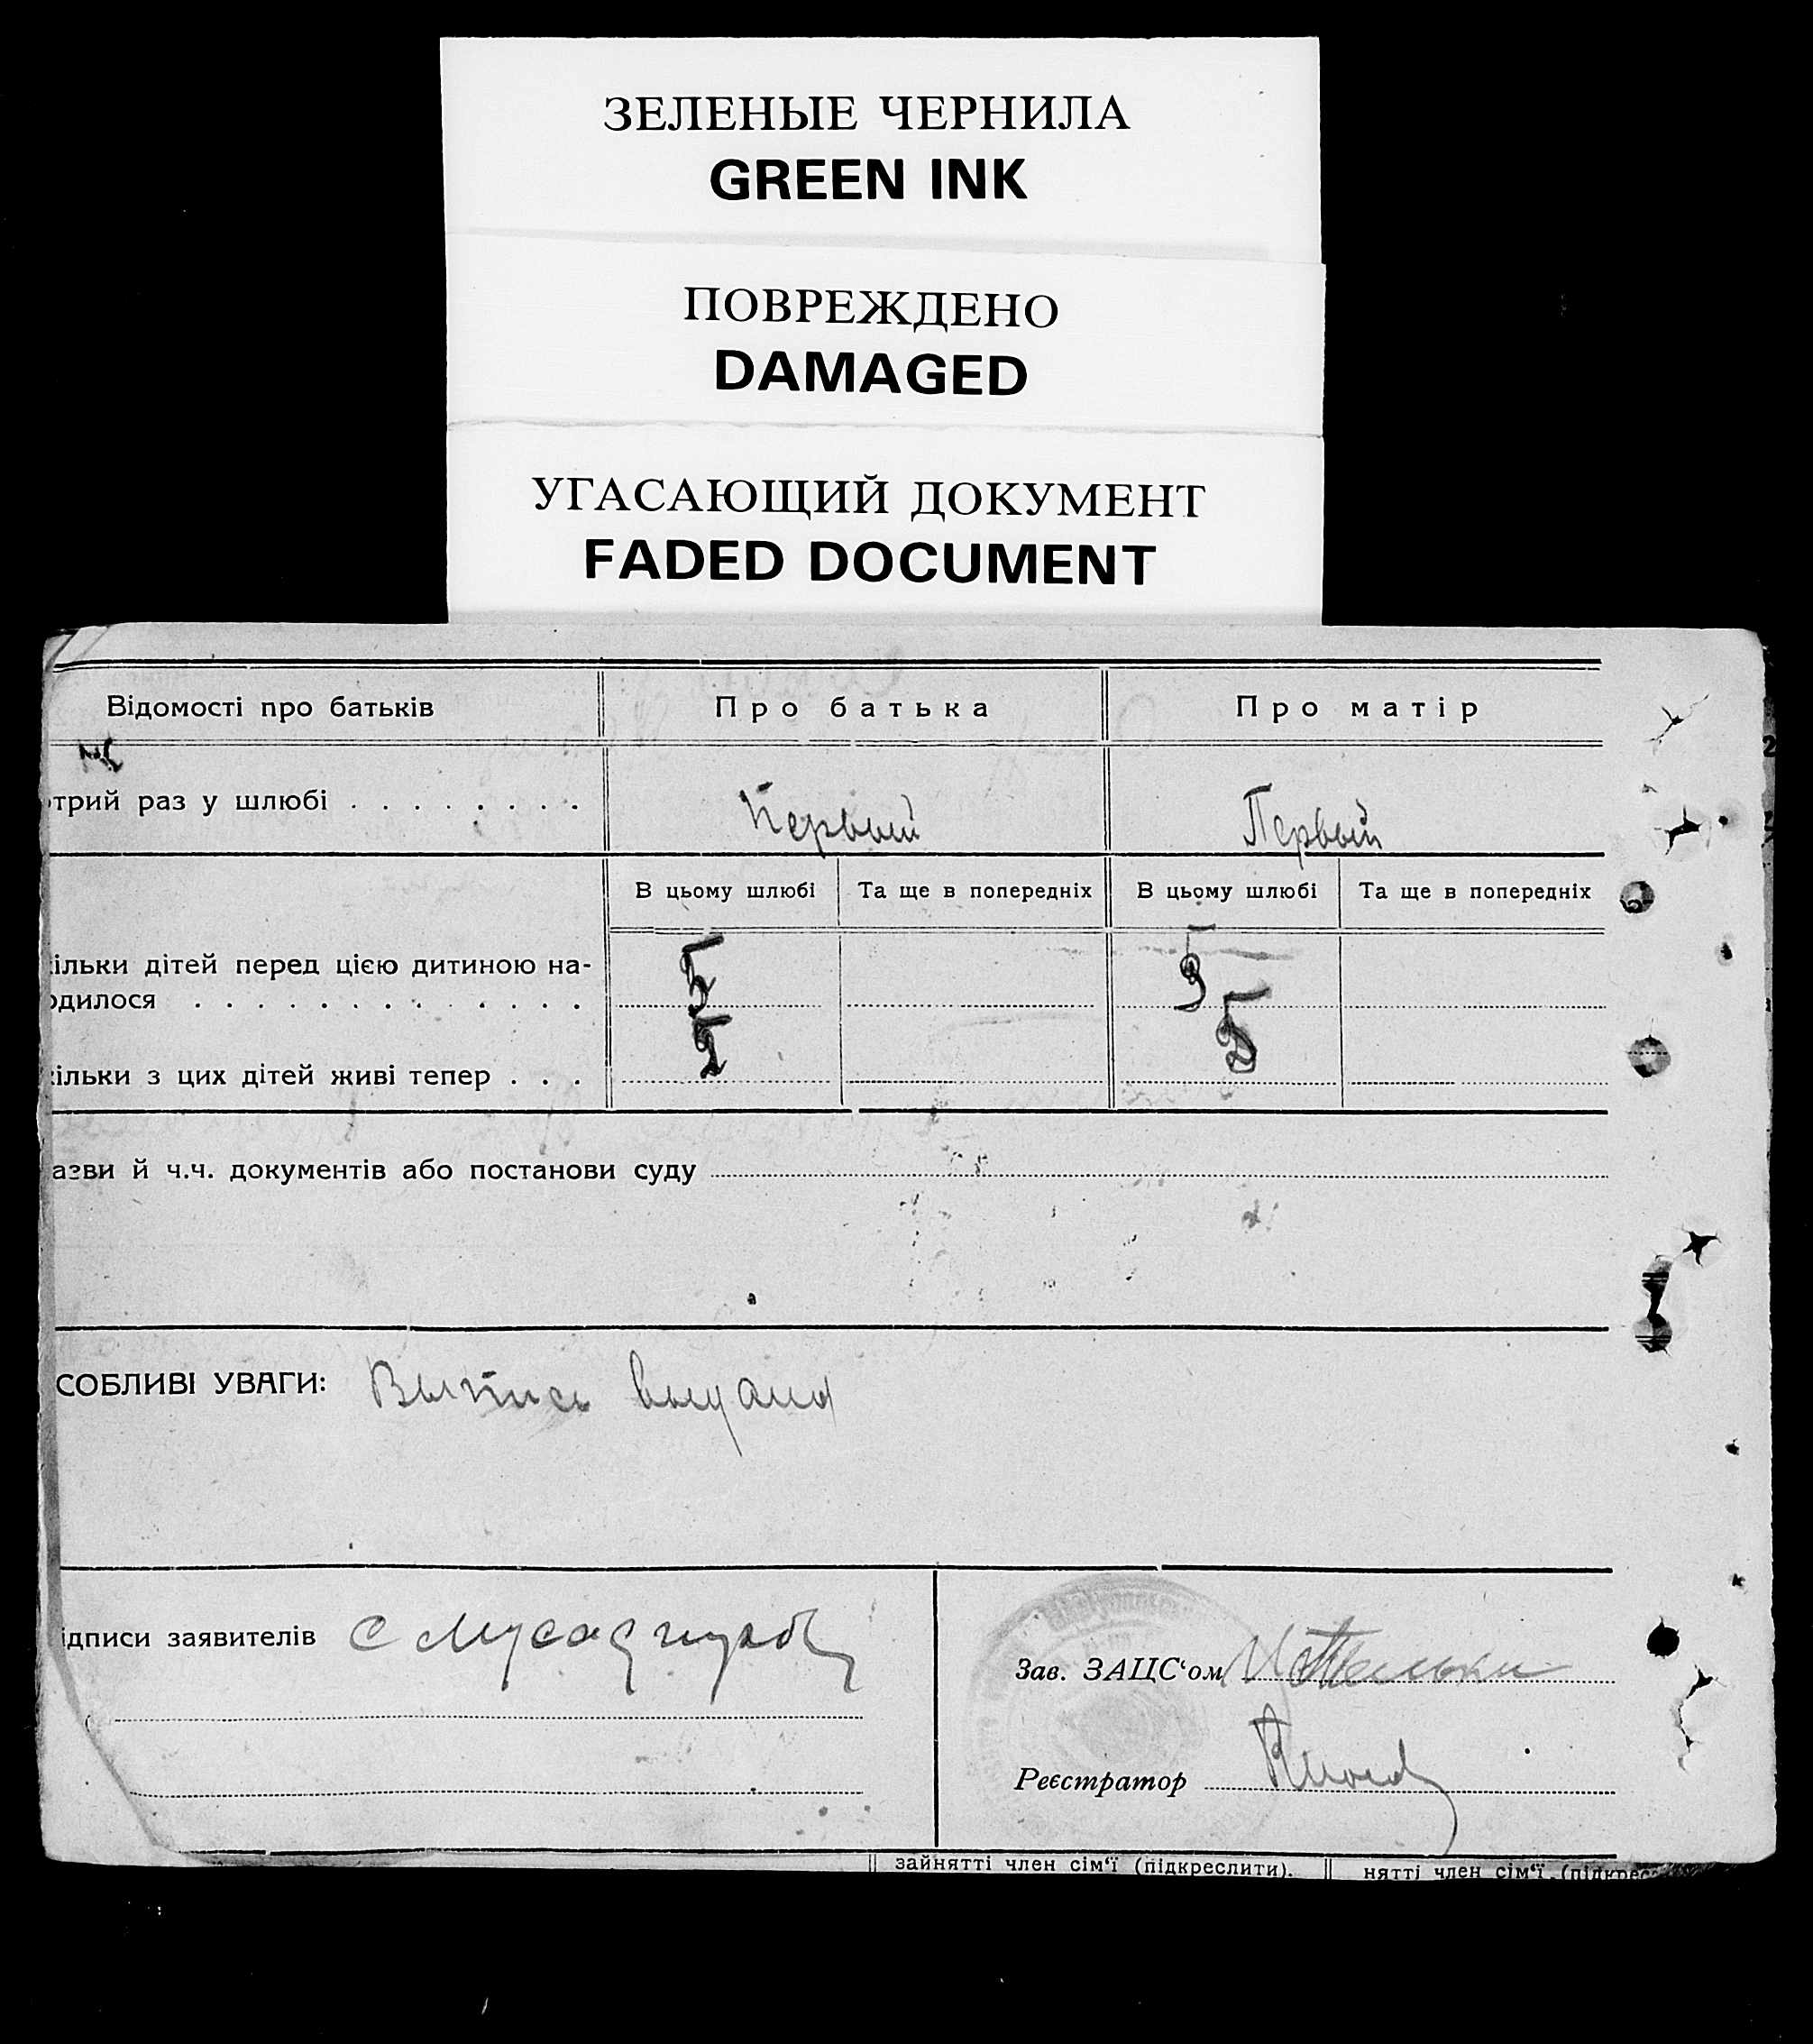 ЗЕЛЕНЫЕ ЧЕРНИЛА
GREEN INK
ПОВРЕЖДЕНО
DAMAGED
УГАСАЮЩИЙ ДОКУМЕНТ
FADED DOCUMENT
Відомості про батьків Про батька Про матір
отрий раз у шлюбі . . . . . . . . Первый Первый
В цьому шлюбі Та ще в попередніх В цьому шлюбі Та ще в попередніх
кільки дітей перед цією дитиною на-
одилося . . . . . . . . . . . . . 5
кільки з цих дітей живі тепер . . .
азви й ч.ч. документів або постанови суду
СОБЛИВІ УВАГИ: Выпись выдана
ідписи заявителів
Зав. ЗАЦС‘ом
Реєстратор
зайнятті член сім‘ї (підкреслити). нятті член сім‘ї (підкрес